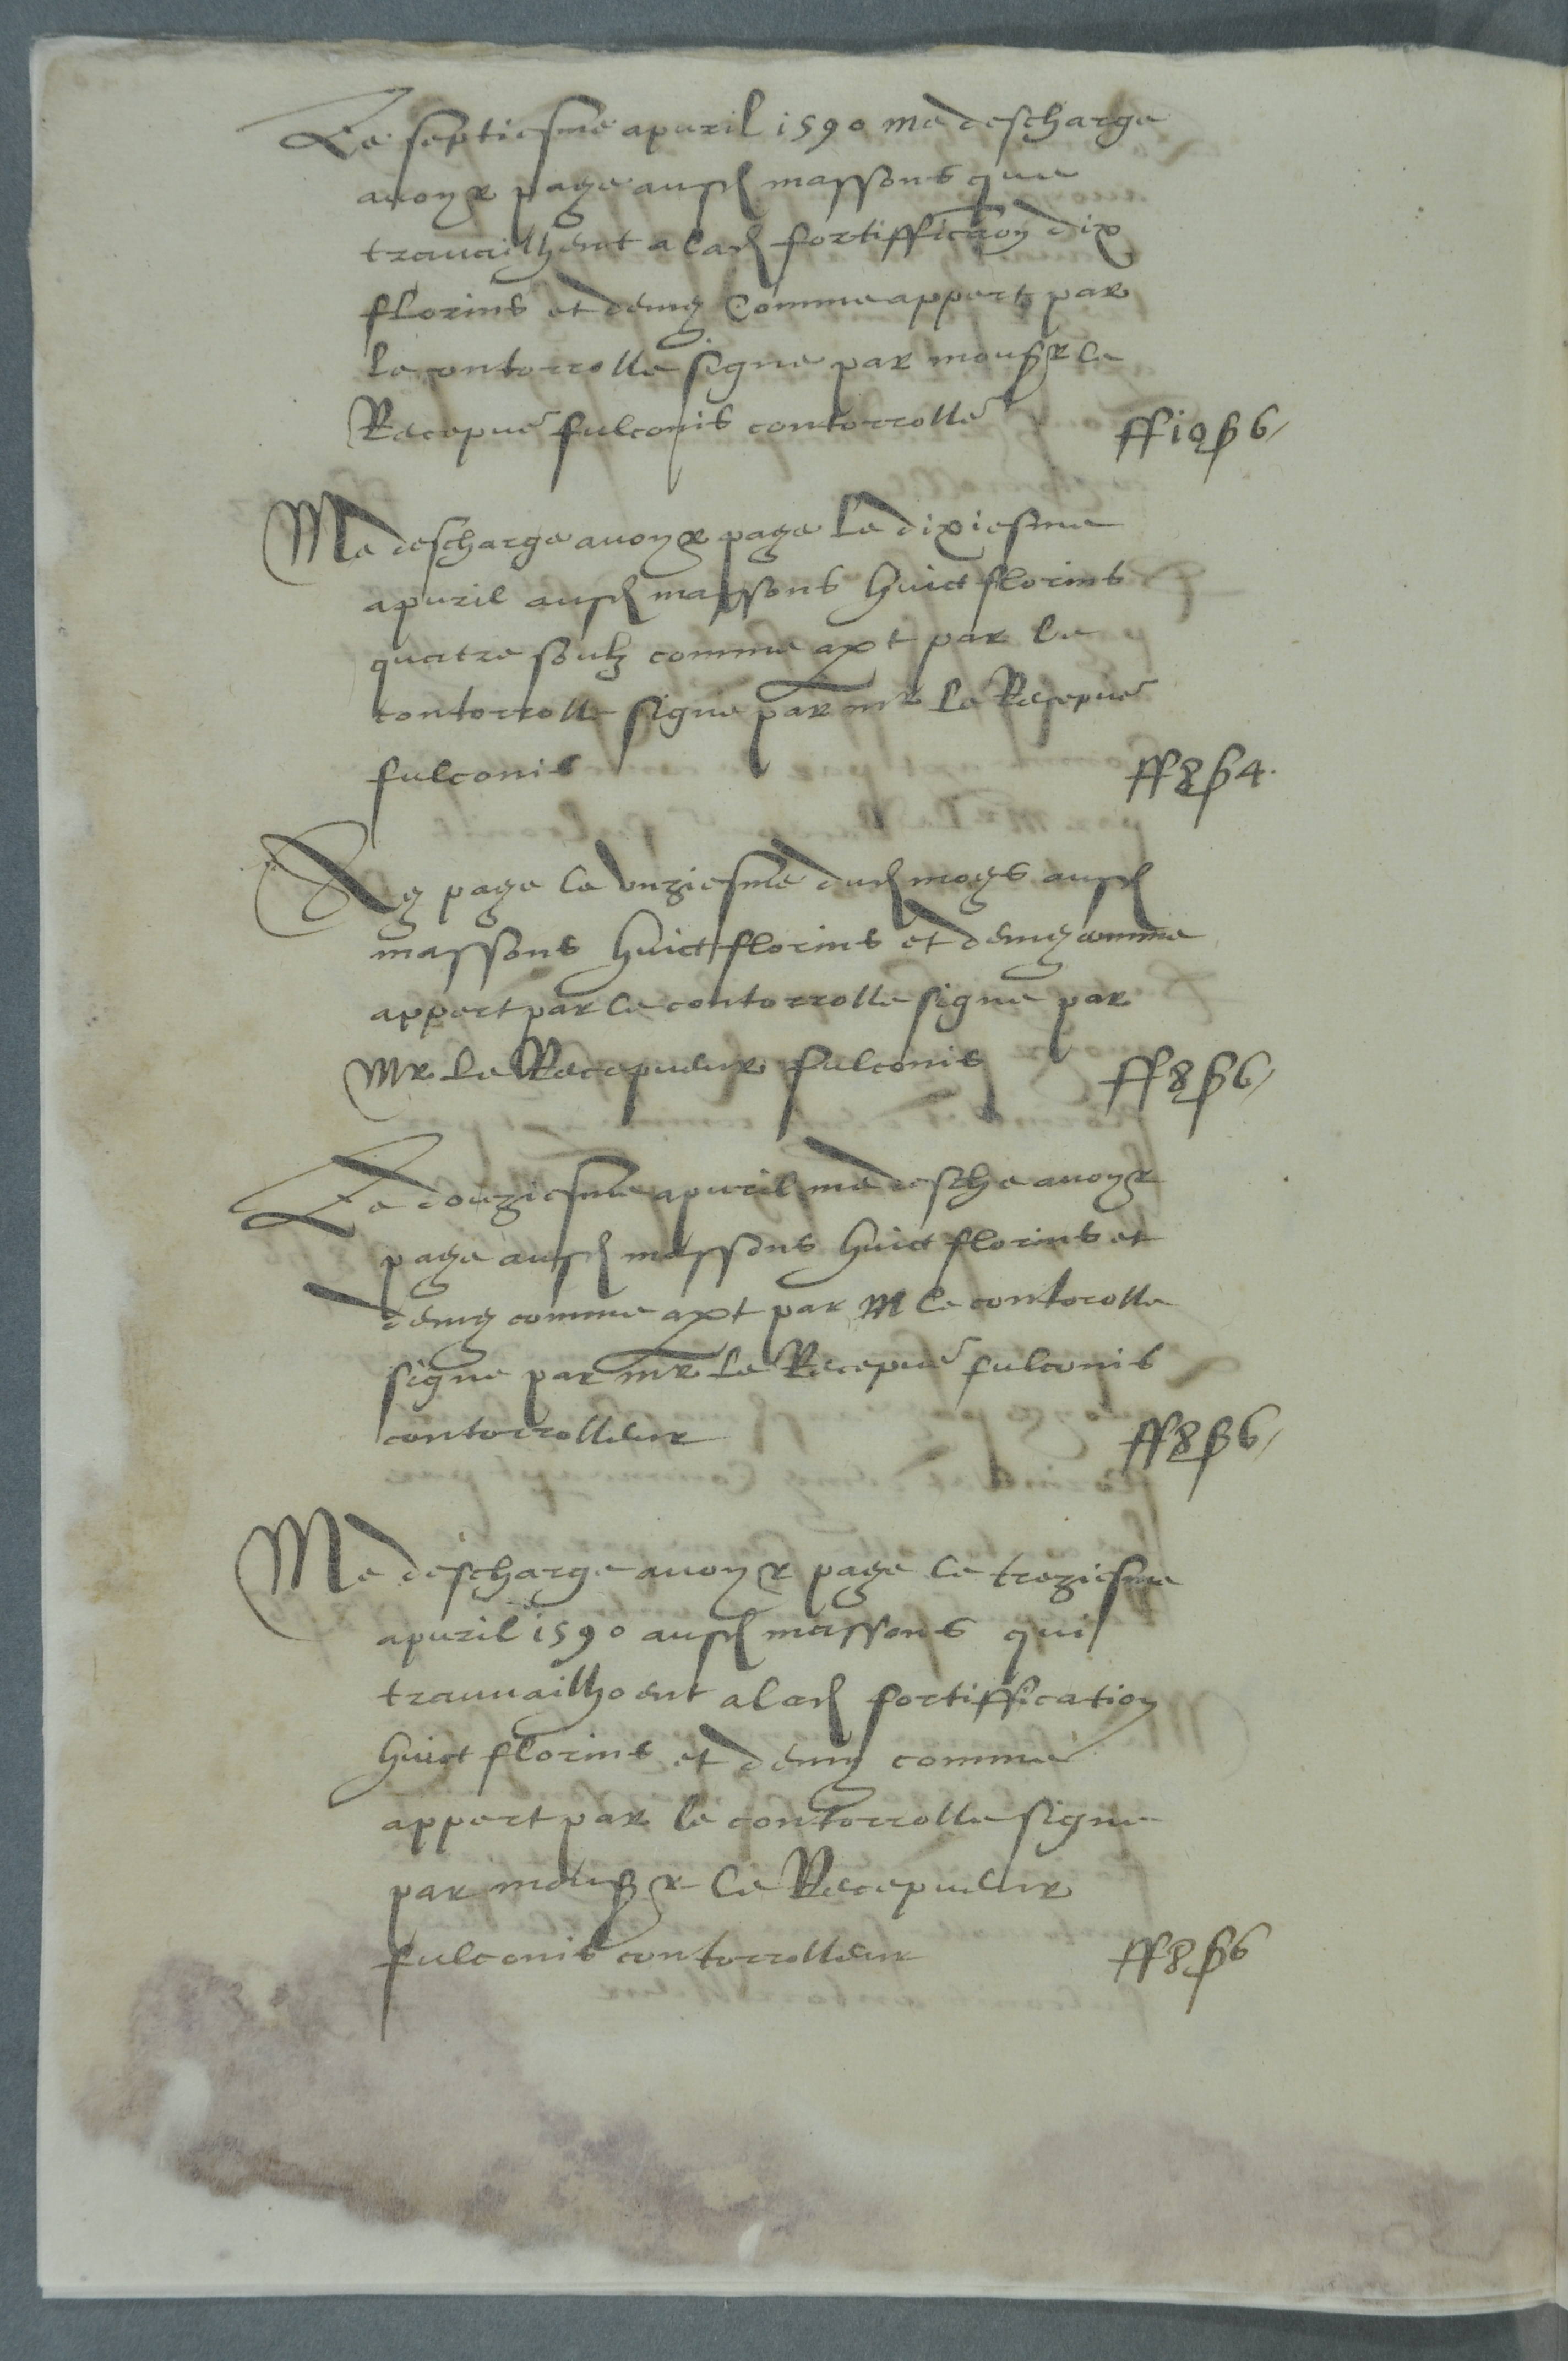 Le septiesme apvril 1590 me descharge
avoyr paye ausd massons que
travailhent a lad fortiffication dix
florins et demy Comme appert par
le contorrolle signe par monsr le
Recepur fulconis contorrolle
ff 10 ß 6
Me descharge avoyr paye Le dixiesme
apvril ausd massons huict florins
quatre soulz comme apt par le
contorrolle signe par mr Le Recepur
fulconis
ff 8 ß 4
Ay paye le unziesme dud moys ausd
massons huict florins et demy comme
appert par le contorrolle signe par
Mr Le Recepveur fulconis
ff 8 ß 6
Le douziesme apvril me desche avoyr
paye ausd massons huict florins et
demy comme apt par M le contorolle
signe par mr Le Recepur fulconis
contorrolleur
ff 8 ß 6
Me descharge avoyr paye le treziesme
apvril 1590 ausd massons qui
travvailhoent a lad fortiffication
huict florins et demy comme
appert par le contorrolle signe
par monsr le Recepveur
fulconis contorrolleur
ff 8 ß 6